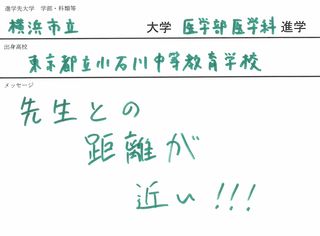 進学先大学 学部・科類等
横浜市立 大学 医学部医学科 進学
出身高校
東京都立小石川中等教育学校
メッセージ
先生との
距離が
近い!!!